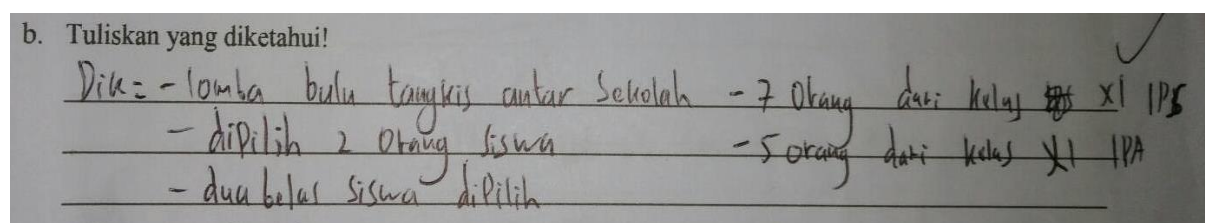 b. Tuliskan yang diketahui!
Dik = - lomba bulu tangkis antar Sekolah - 7 Orang dari kelas XI IPS
- dipilih 2 Orang siswa - 5 orang dari kelas XI IPA
- dua belas siswa dipilih